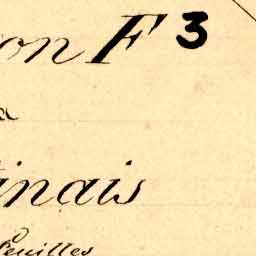 on F 3
a
inais
feuilles